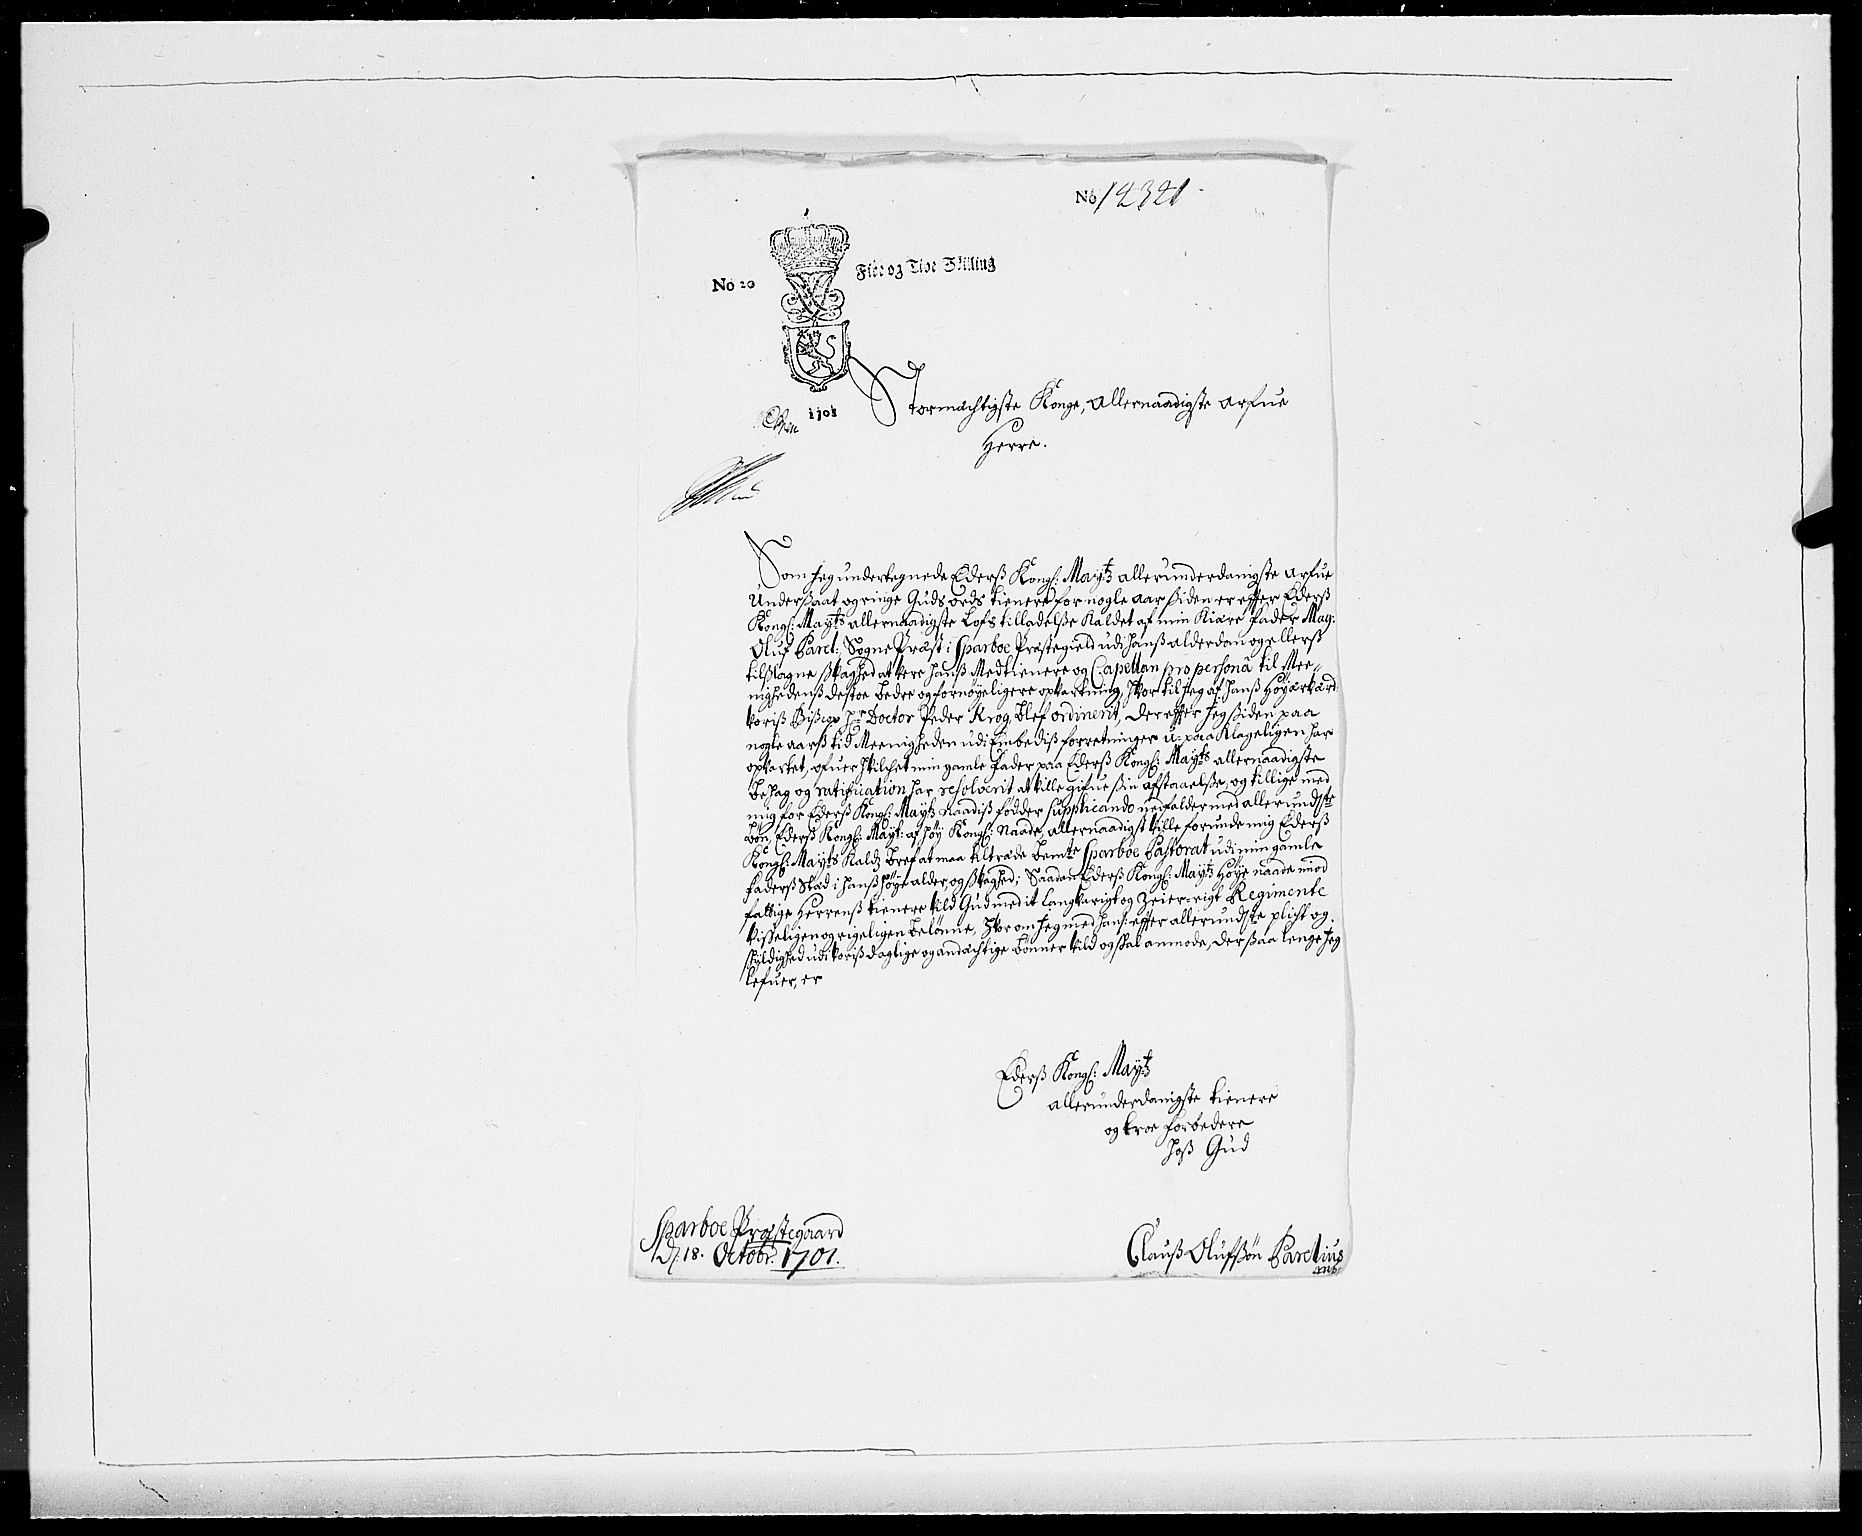 No 12321
No 20 Fire og Tive Skilling
1701
Stormechtigste Konge, allernaadigste arfue
Herre.
Som Jeg undertegnede Ederß Kongl: Maytz allerunderdanigste arfue
Underßaat og ringe Guds ords tienere for nogle aar siden er effter Ederß
Kongl: Maytz allernaadigste Lofs tilladelße kaldet af min kiære fader Mag:
Oluf Paret: Sogne Præst i Sparboe Præstegield udi hanß alderdom og ellerß
tilslagne Skaghed at vere hanß Medtienere og Capellan pro persona til Mee-
nighedenß destoe bedre og fornøyeligere opvartning, hvor til Jeg af hanß Høyærværd:
voriß Biscop hr Doctor Peder Krog, blef ordinerit, der effter Jeg siden paa
nogle aarß tid Meenigheden udi Embediß forretninger u-paaklageligen har
opvartet, ofuer hvilchet min gamle fader paa Ederß Kongl: Maytz allernaadigste
behag og ratification har resolverit at ville gifue sin afstaaelße, og tillige med
mig for Ederß Kongl: Maytz naadiß fødder supplicando nedfalder med allerundste
bøn, Ederß Kongl: Mayt: af høy Kongl: Naade, allernaadigst ville forunde mig Ederß
Kongl: Maytz Kaldz bref at maa tiltræde bemte Sparboe Pastorat udi min gamle
faderß Stæd i hanß høye alder, og Skaghed; Saadan Ederß Kongl: Maytz Høye naade imod
fattige Herrenß tienere vild Gud med it langvarigt og Zeier-rigt Regimente
visseligen og rigeligen belønne, Hvor om Jeg med hanß: effter allerundste plicht og
skyldighed udi voriß daglige og andæchtige bønner vild og skal anmode, der saa lenge Jeg
lefuer, er
Ederß Kongl: Maytz
allerunderdanigste tienere
og troe forbedere
hoß Gud
Sparboe Præstegaard
d. 18. Octobr: 1701.
Clauß Olufßøn Paretius
mp